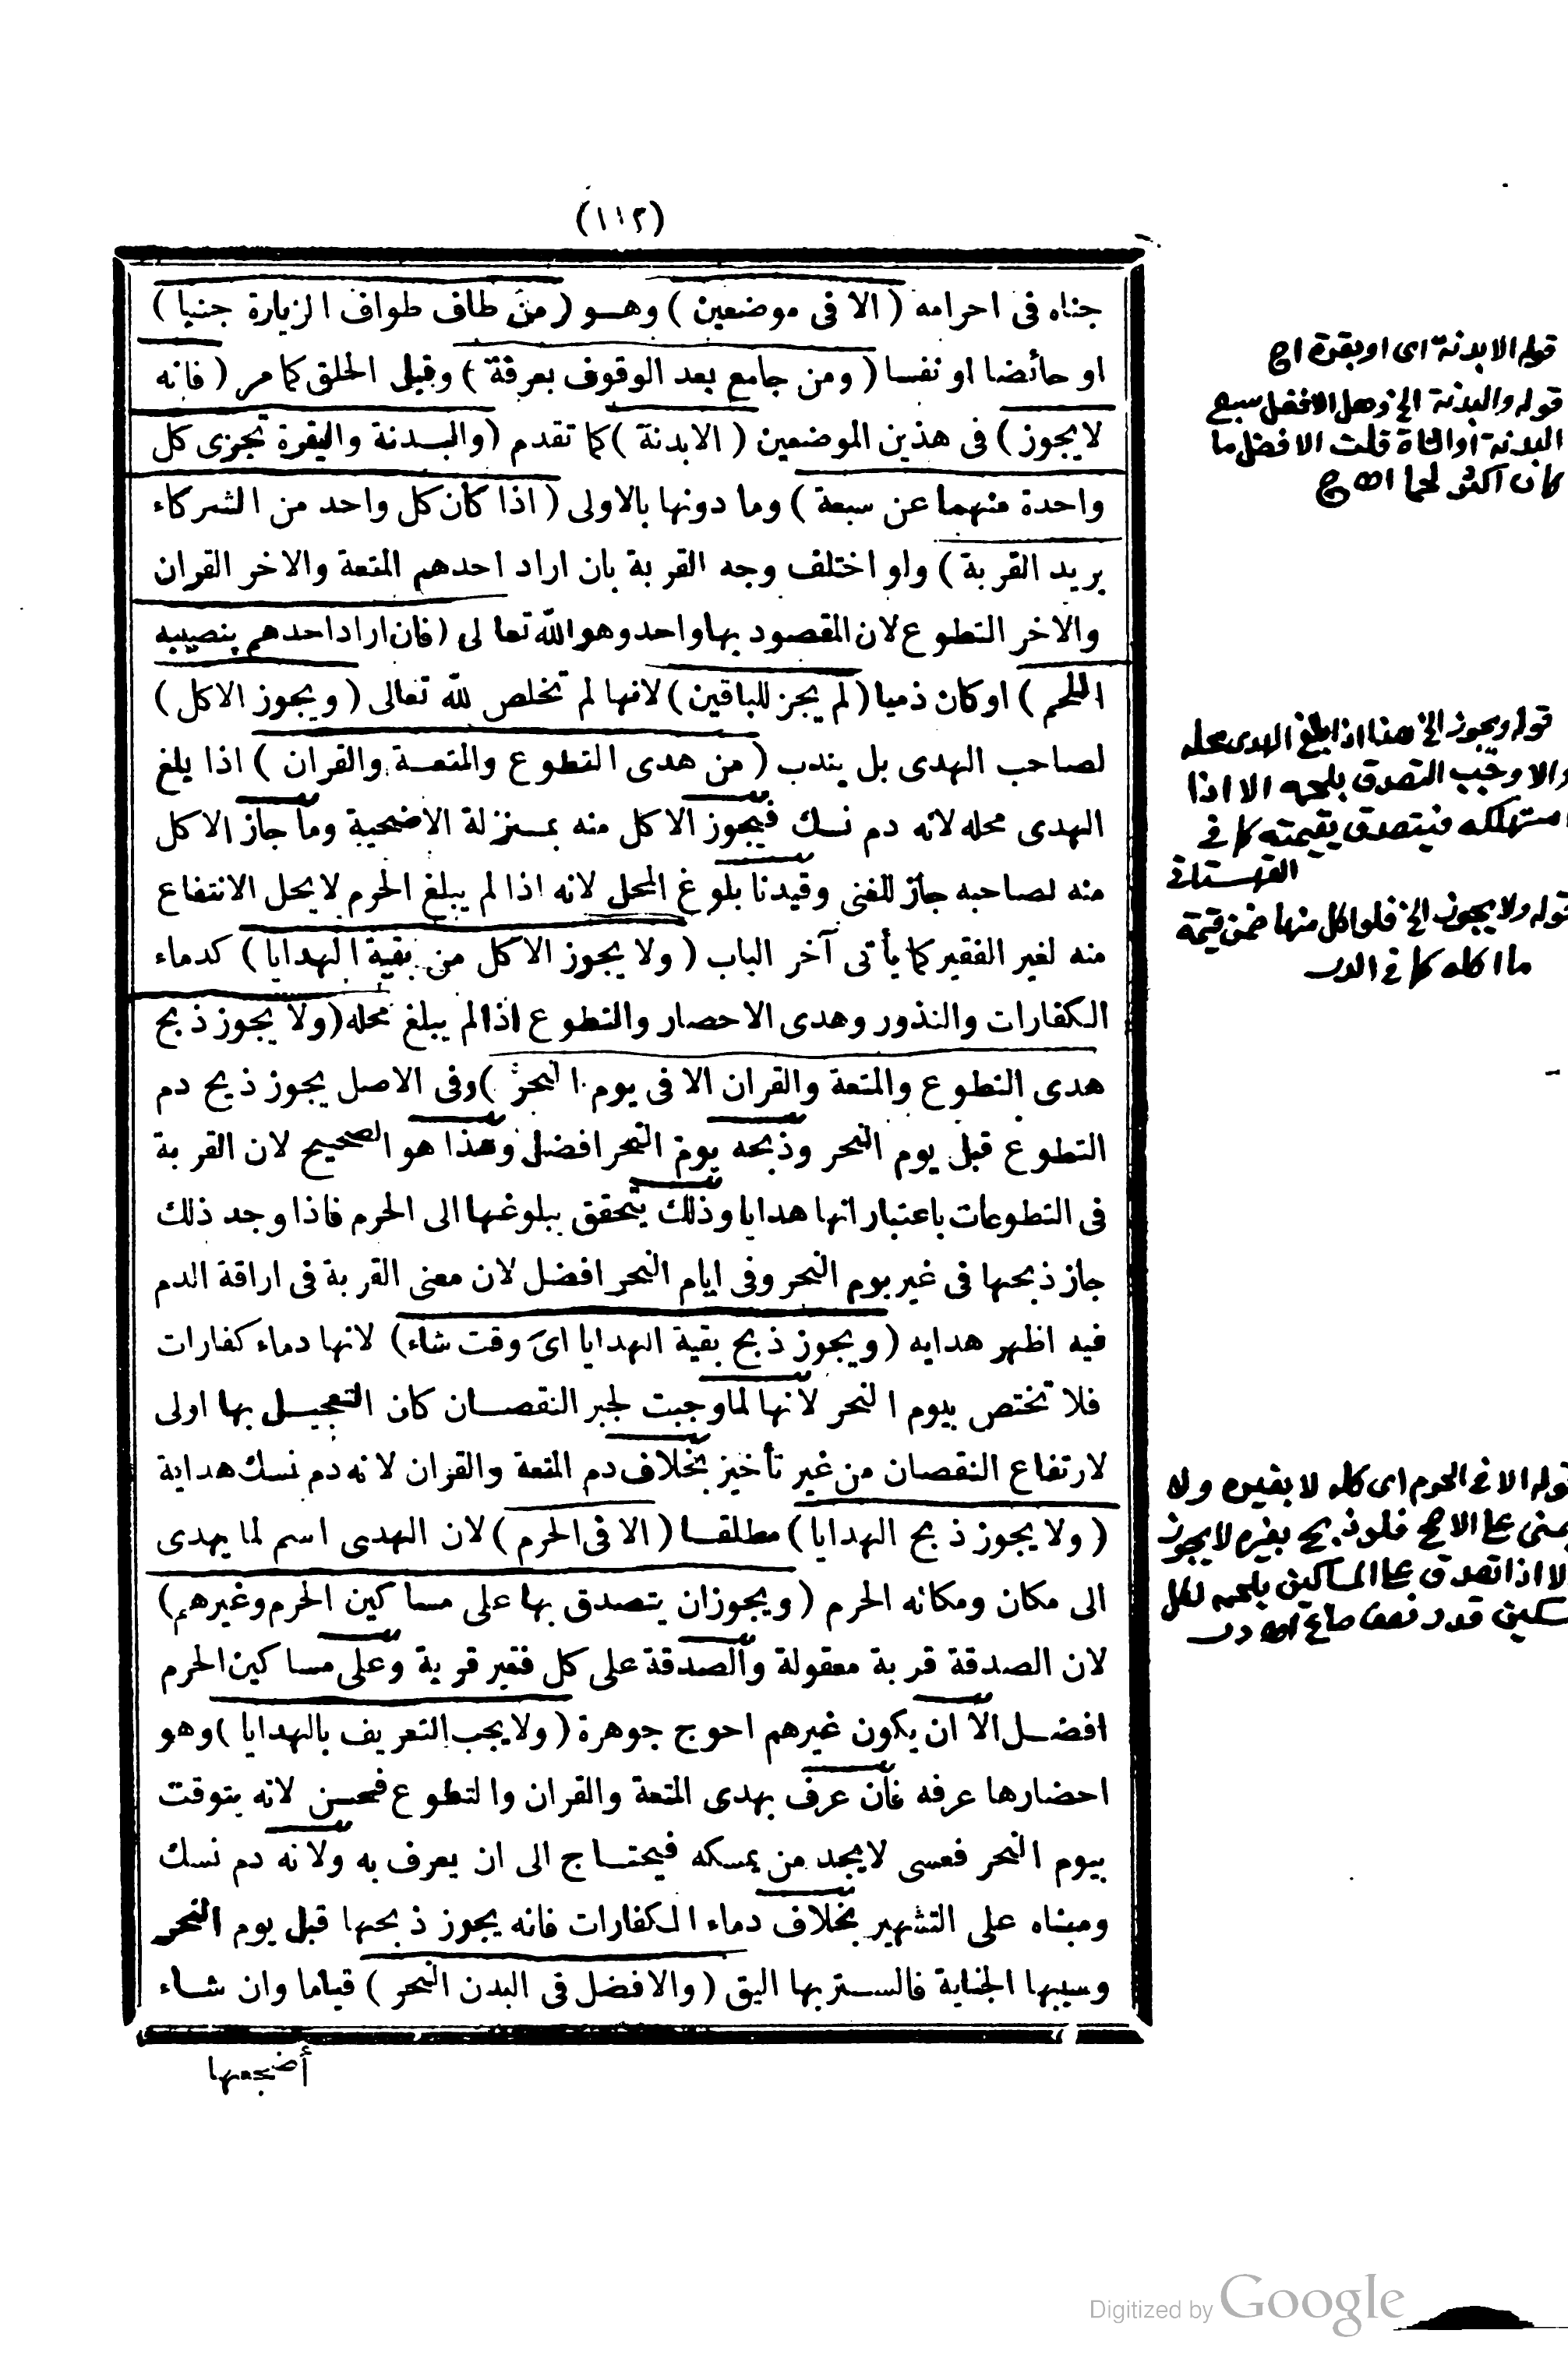 (١١٢)
جناه فى احرامه (الا فى موضعين) وهـو (من طاف طواف الزيارة جنبا)
او حائضا او نفسا (ومن جامع بعد الوقوف بعرفة) وقبل الحلق كما مر (فانه
لايجوز) فى هذين الموضعين (الابدنة) كما تقدم (والبـدنة والبقرة تجزى كل
واحدة منهما عن سبعة) وما دونها بالاولى (اذا كان كل واحد من الشركاء
يريد القربة) ولو اختلف وجه القربة بان اراد احدهم المتعة والاخر القران
والاخر التطوع لان المقصود بها واحد وهو الله تعالى (فان اراد احدهم بنصيبه
اللحم) او كان ذميا (لم يجز للباقين) لانها لم تخلص لله تعالى (ويجوز الاكل)
لصاحب الهدى بل يندب (من هدى التطوع والمتعـة والقران) اذا بلغ
الهدى محله لانه دم نسك فيجوز الاكل منه بمنزلة الاضحية وما جاز الاكل
منه لصاحبه جاز للغنى وقيدنا بلوغ المحل لانه اذا لم يبلغ الحرم لايحل الانتفاع
منه لغير الفقير كما يأتى آخر الباب (ولا يجوز الاكل من بقية الهدايا) كدماء
الكفارات والنذور وهدى الاحصار والتطوع اذا لم يبلغ محله (ولا يجوز ذبح
هدى التطوع والمتعة والقران الا فى يوم النحر) وفى الاصل يجوز ذبح دم
التطوع قبل يوم النحر وذبحه يوم النحر افضل وهذا هو الصحيح لان القربة
فى التطوعات باعتبار انها هدايا وذلك يتحقق ببلوغها الى الحرم فاذا وجد ذلك
جاز ذبحها فى غير يوم النحر وفى ايام النحر افضل لان معنى القربة فى اراقة الدم
فيه اظهر هدايه (ويجوز ذبح بقية الهدايا اى وقت شاء) لانها دماء كفارات
فلا تختص بيوم النحر لانها لما وجبت لجبر النقصـان كان التعجيـل بها اولى
لارتفاع النقصان من غير تأخير بخلاف دم المتعة والقران لانه دم نسك هداية
(ولا يجوز ذبح الهدايا) مطلقـا (الا فى الحرم) لان الهدى اسم لما يهدى
الى مكان ومكانه الحرم (ويجوز ان يتصدق بها على مساكين الحرم وغيرهم)
لان الصدقة قربة معقولة والصدقة على كل فقير قربة وعلى مساكين الحرم
افضـل الا ان يكون غيرهم احوج جوهرة (ولايجب التعريف بالهدايا) وهو
احضارها عرفه فان عرف بهدى المتعة والقران والتطوع فحسن لانه يتوقت
بيوم النحر فعسى لايجد من يمسكه فيحتـاج الى ان يعرف به ولانه دم نسك
ومبناه على التشهير بخلاف دماء الكفارات فانه يجوز ذبحها قبل يوم النحر
وسببها الجناية فالستر بها اليق (والافضل فى البدن النحر) قياما وان شـاء
أضجعها
قوله الا بدنة اى او بقرة اھ ج
قوله والبدنة الخ وهل الافضل سبع
البدنة او الشاة قلت الافضل ما
كان اكثر لحما اھ ج
قوله ويجوز الخ هذا اذا بلغ الهدى محله
والا وجب التصدق بلحمه الا اذا
استهلكه فيتصدق بقيمته كما فى
القهستانى
قوله ولا يجوز الخ فلو اكل منها ضمن قيمة
ما اكله كما فى الدر
قوله الا فى الحرم اى كله لا بقيده ولا
بمنى على الاصح فلو ذبح بغيره لا يجوز
الا اذا تصدق على المساكين بلحمه لكل
مسكين قدر نصف صاع اھ در
Digitized by Google